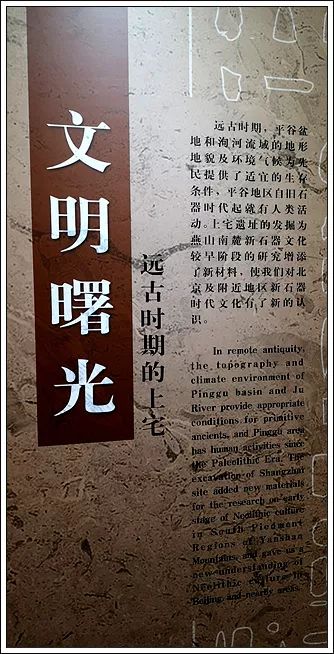 文明曙光
远古时期的上宅
远古时期，平谷盆
地和洵河流域的地形
地貌及环境气候为先
民提供了适宜的生存
条件，平谷地区自旧石
器时代起就有人类活
动。上宅遗址的发掘为
燕山南麓新石器文化
较早阶段的研究增添
了新材料，使我们对北
京及附近地区新石器
时代文化有了新的认
识。
In remote antiquity,
the topography and
climate environment of
Pinggu basin and Ju
River provide appropriate
conditions for primitive
ancients, and Pinggu area
has human activities since
the Paleolithic Era. The
excavation of Shangzhai
site added new materials
for the research on early
stage of Neolithic culture
in South Piedmont
Regions of Yanshan
Mountains, and gave us a
new understanding of
Neolithic culture in
Beijing and nearby areas.